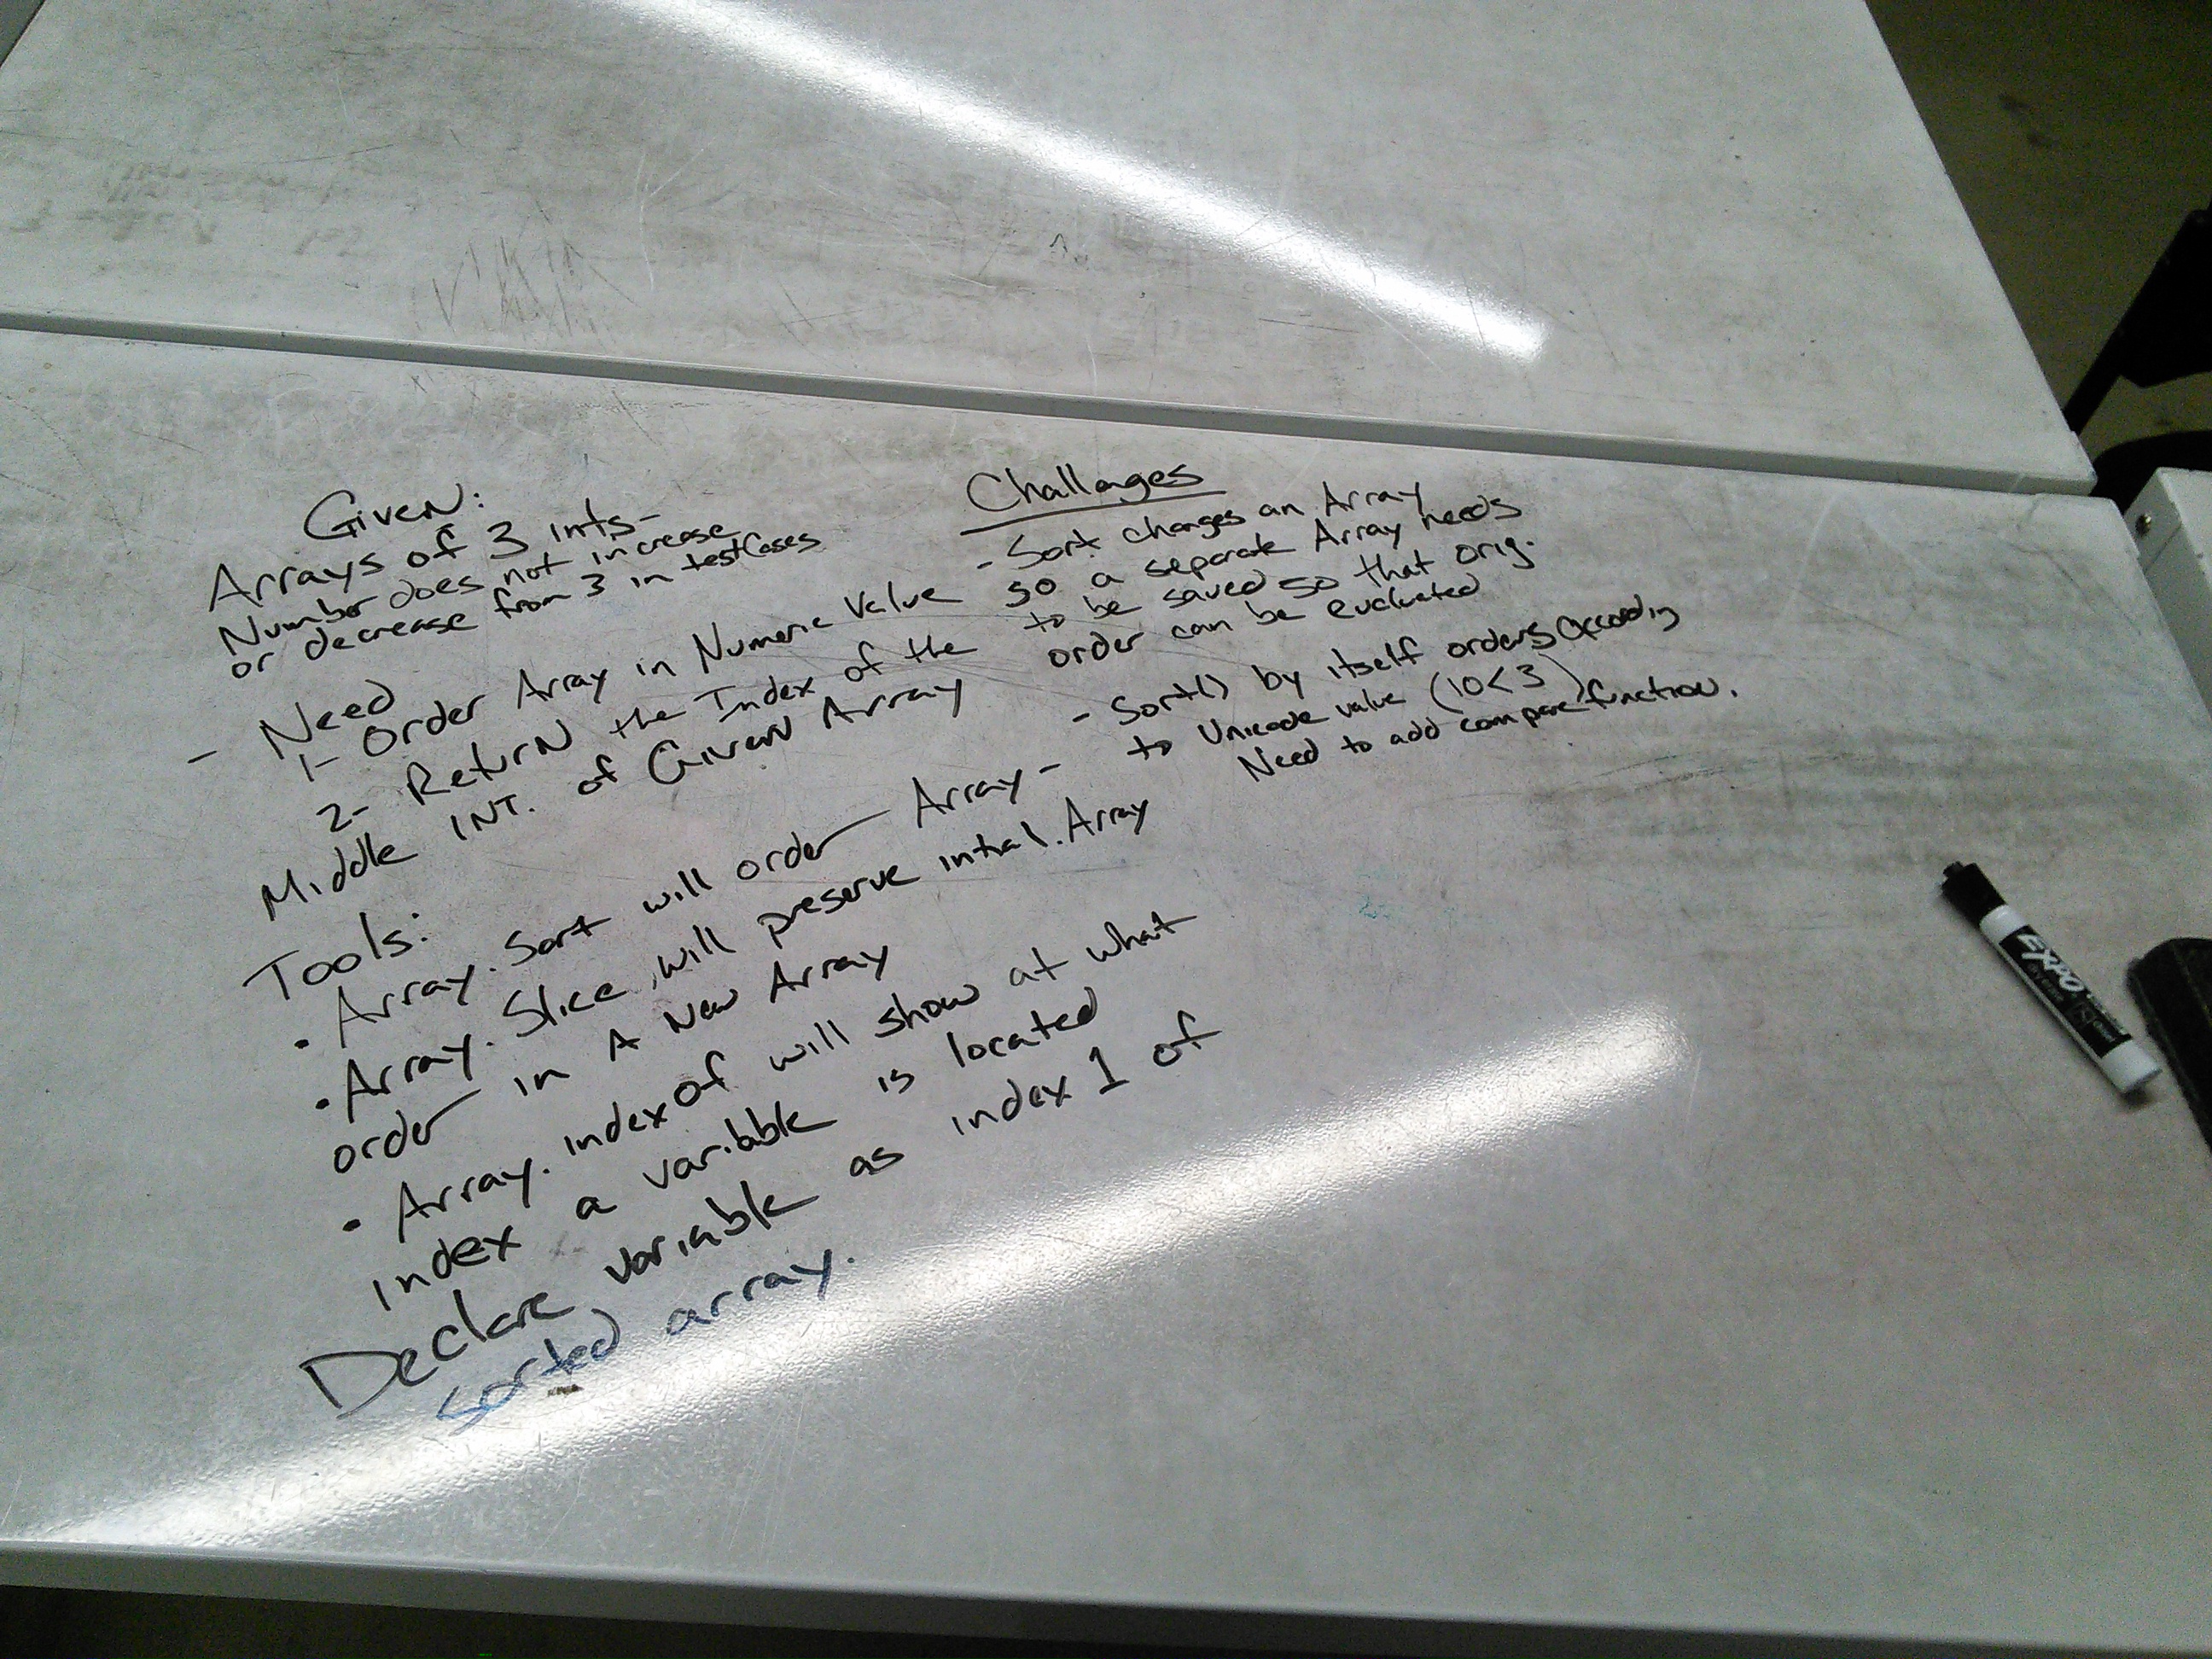 Given:
Arrays of 3 ints-
Number does not increase
or decrease from 3 in testCases
- Need
1- Order Array in Numeric Value
2- Return the Index of the
Middle INT. of Given Array
Tools:
• Array. Sort will order Array-
• Array. Slice will preserve intial. Array
order in A New Array
• Array. indexOf will show at what
index a variable is located
Declare variable as index 1 of
sorted array.
Challages
- Sort changes an Array
so a separate Array needs
to be saved so that orig.
order can be evaluated
- Sort() by itself orders accordig
to Unicode value (10<3)
Need to add compare function.
EXPO